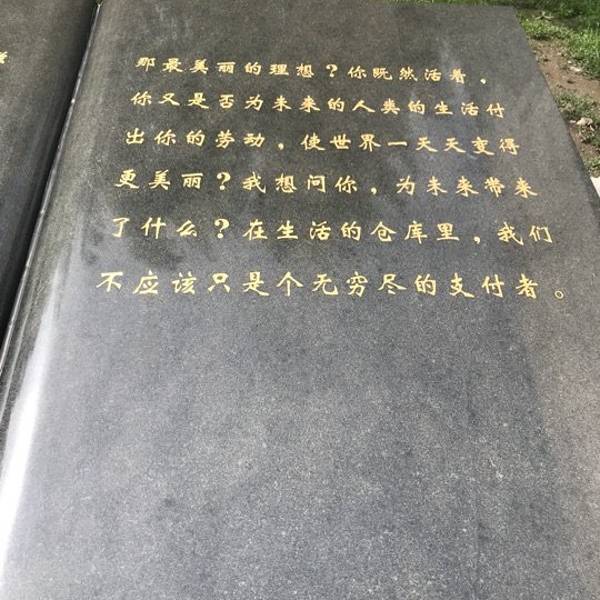 那最美丽的理想？你既然活着，
你又是否为未来的人类的生活付
出你的劳动，使世界一天天变得
更美丽？我想问你，为未来带来
了什么？在生活的仓库里，我们
不应该只是个无穷尽的支付者。